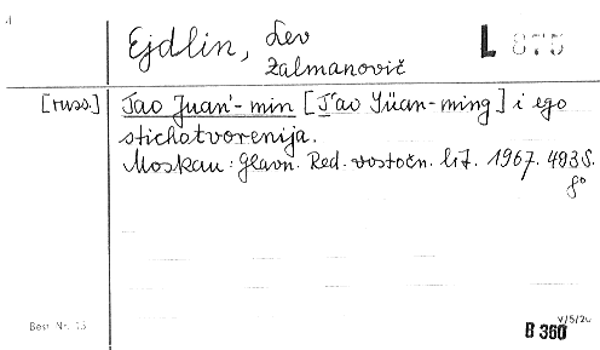 Ejdlin, Lev
Zalmanovič
L 875
[russ.] Tao Juan'-min [T'ao Yüan-ming] i ego
stichotvorenija.
Moskau: Glavn. Red. vostočn. lit. 1967. 493 S.
8°
Best. Nr. 15
V/5/20
B 360